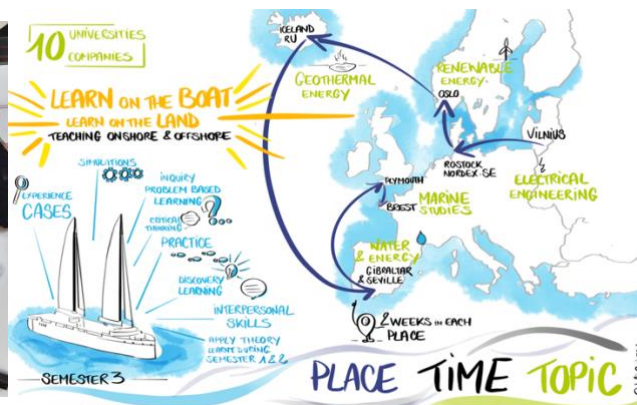 10 UNIVERSITIES
COMPANIES
LEARN ON THE BOAT
LEARN ON THE LAND
TEACHING ONSHORE & OFFSHORE
SIMULATIONS
EXPERIENCE
CASES
INQUIRY
PROBLEM BASED
LEARNING
CRITICAL
THINKING
PRACTICE
DISCOVERY
LEARNING
INTERPERSONAL
SKILLS
APPLY THEORY
LEARNT DURING
SEMESTER 1 & 2
SEMESTER 3
ICELAND
RU
GEOTHERMAL
ENERGY
RENEWABLE
ENERGY
OSLO
VILNIUS
ROSTOCK
NORDEX-SE
ELECTRICAL
ENGINEERING
PLYMOUTH
BREST
MARINE
STUDIES
WATER
& ENERGY
GIBRALTAR
& SEVILLE
2 WEEKS IN EACH
PLACE
PLACE TIME TOPIC